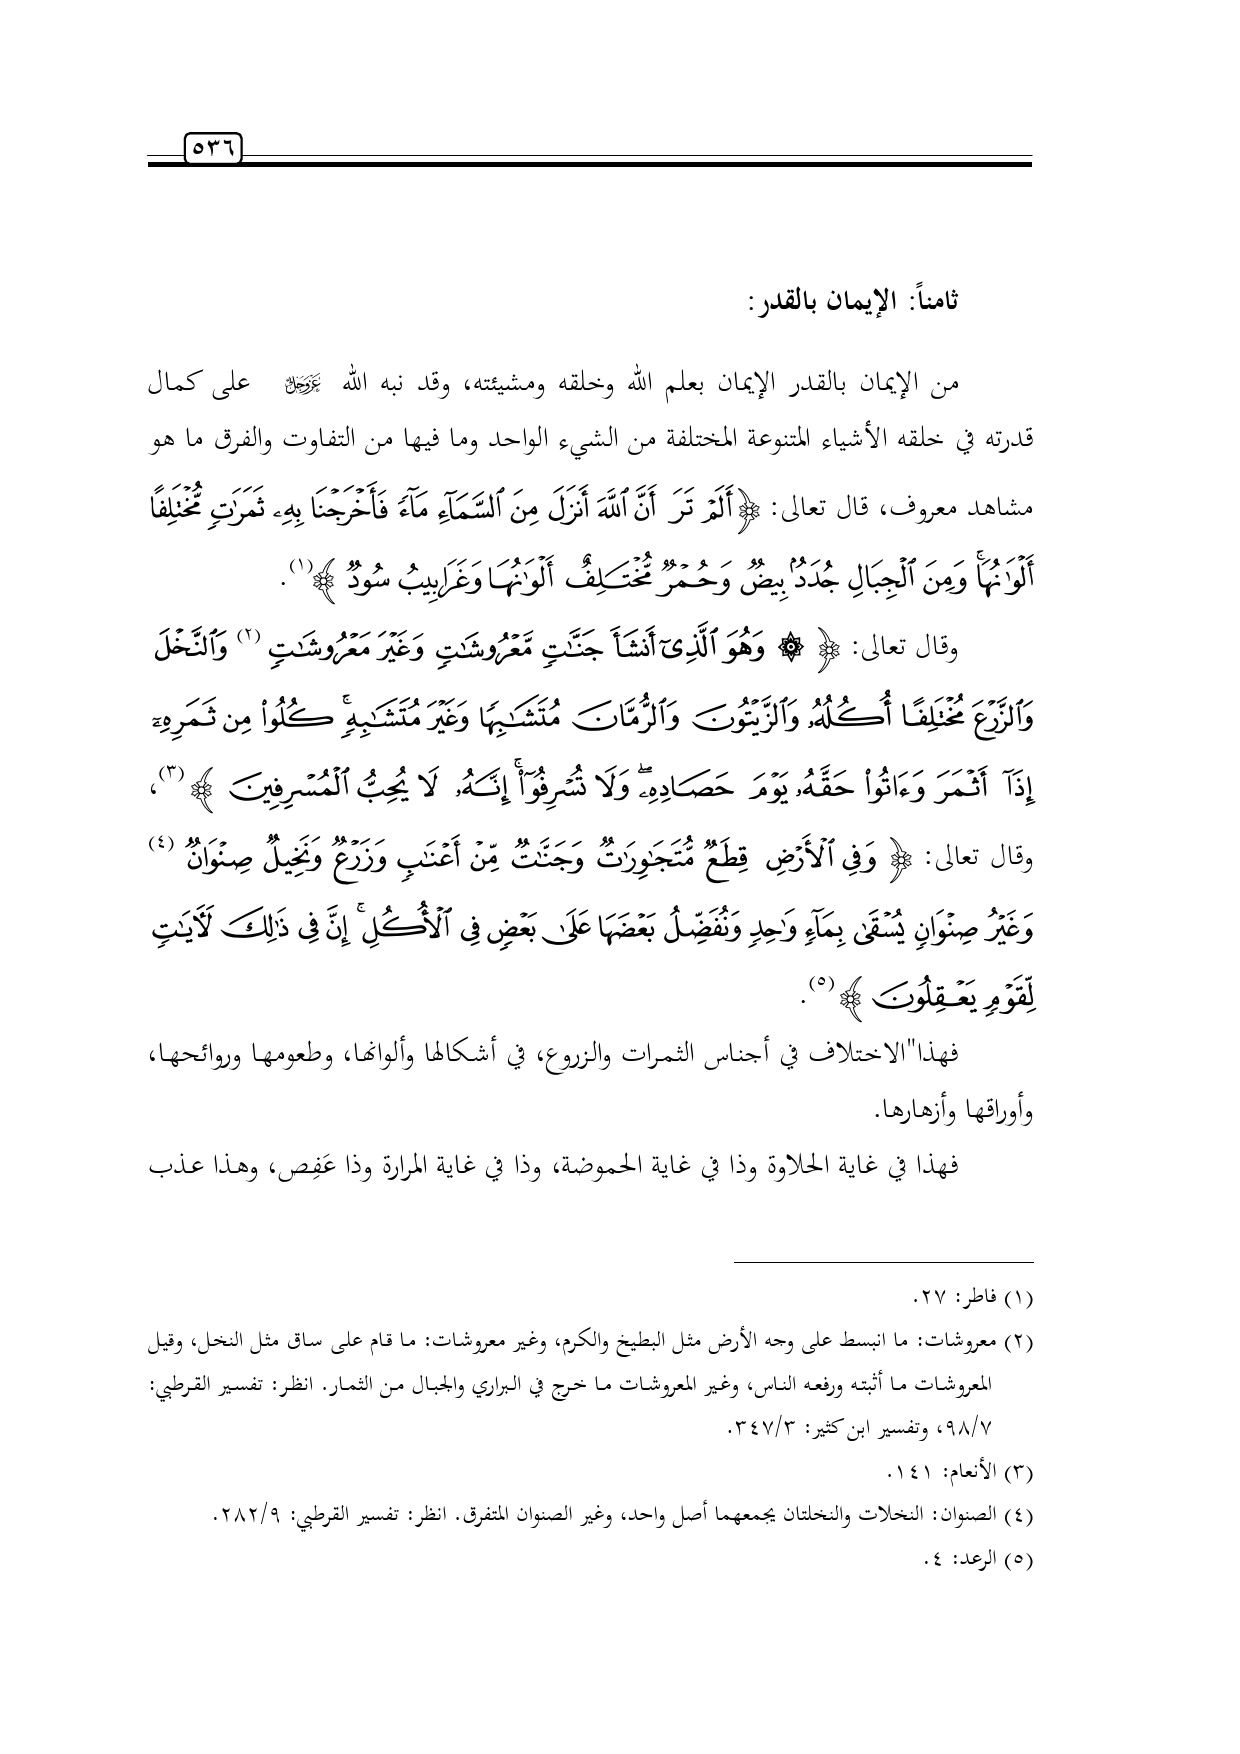 ٥٣٦
ثامناً: الإيمان بالقدر:
من الإيمان بالقدر الإيمان بعلم الله وخلقه ومشيئته، وقد نبه الله عَزَّوَجَلَّ على كمال
قدرته في خلقه الأشياء المتنوعة المختلفة من الشيء الواحد وما فيها من التفاوت والفرق ما هو
مشاهد معروف، قال تعالى: ﴿أَلَمۡ تَرَ أَنَّ ٱللَّهَ أَنزَلَ مِنَ ٱلسَّمَآءِ مَآءٗ فَأَخۡرَجۡنَا بِهِۦ ثَمَرَٰتٖ مُّخۡتَلِفًا
أَلۡوَٰنُهَاۚ وَمِنَ ٱلۡجِبَالِ جُدَدُۢ بِيضٞ وَحُمۡرٞ مُّخۡتَلِفٌ أَلۡوَٰنُهَا وَغَرَابِيبُ سُودٞ ﴾(١).
وقال تعالى: ﴿ ۞ وَهُوَ ٱلَّذِيٓ أَنشَأَ جَنَّٰتٖ مَّعۡرُوشَٰتٖ وَغَيۡرَ مَعۡرُوشَٰتٖ (٢) وَٱلنَّخۡلَ
وَٱلزَّرۡعَ مُخۡتَلِفًا أُكُلُهُۥ وَٱلزَّيۡتُونَ وَٱلرُّمَّانَ مُتَشَٰبِهٗا وَغَيۡرَ مُتَشَٰبِهٖۚ كُلُواْ مِن ثَمَرِهِۦٓ
إِذَآ أَثۡمَرَ وَءَاتُواْ حَقَّهُۥ يَوۡمَ حَصَادِهِۦۖ وَلَا تُسۡرِفُوٓاْۚ إِنَّهُۥ لَا يُحِبُّ ٱلۡمُسۡرِفِينَ ﴾(٣)،
وقال تعالى: ﴿ وَفِي ٱلۡأَرۡضِ قِطَعٞ مُّتَجَٰوِرَٰتٞ وَجَنَّٰتٞ مِّنۡ أَعۡنَٰبٖ وَزَرۡعٞ وَنَخِيلٞ صِنۡوَانٞ (٤)
وَغَيۡرُ صِنۡوَانٖ يُسۡقَىٰ بِمَآءٖ وَٰحِدٖ وَنُفَضِّلُ بَعۡضَهَا عَلَىٰ بَعۡضٖ فِي ٱلۡأُكُلِۚ إِنَّ فِي ذَٰلِكَ لَأٓيَٰتٖ
لِّقَوۡمٖ يَعۡقِلُونَ ﴾(٥).
فهذا"الاختلاف في أجناس الثمرات والزروع، في أشكالها وألوانها، وطعومها وروائحها،
وأوراقها وأزهارها.
فهذا في غاية الحلاوة وذا في غاية الحموضة، وذا في غاية المرارة وذا عَفِص، وهذا عذب
(١) فاطر: ٢٧.
(٢) معروشات: ما انبسط على وجه الأرض مثل البطيخ والكرم، وغير معروشات: ما قام على ساق مثل النخل، وقيل
المعروشات ما أثبته ورفعه الناس، وغير المعروشات ما خرج في البراري والجبال من الثمار. انظر: تفسير القرطبي:
٩٨/٧، وتفسير ابن كثير: ٣٤٧/٣.
(٣) الأنعام: ١٤١.
(٤) الصنوان: النخلات والنخلتان يجمعهما أصل واحد، وغير الصنوان المتفرق. انظر: تفسير القرطبي: ٢٨٢/٩.
(٥) الرعد: ٤.